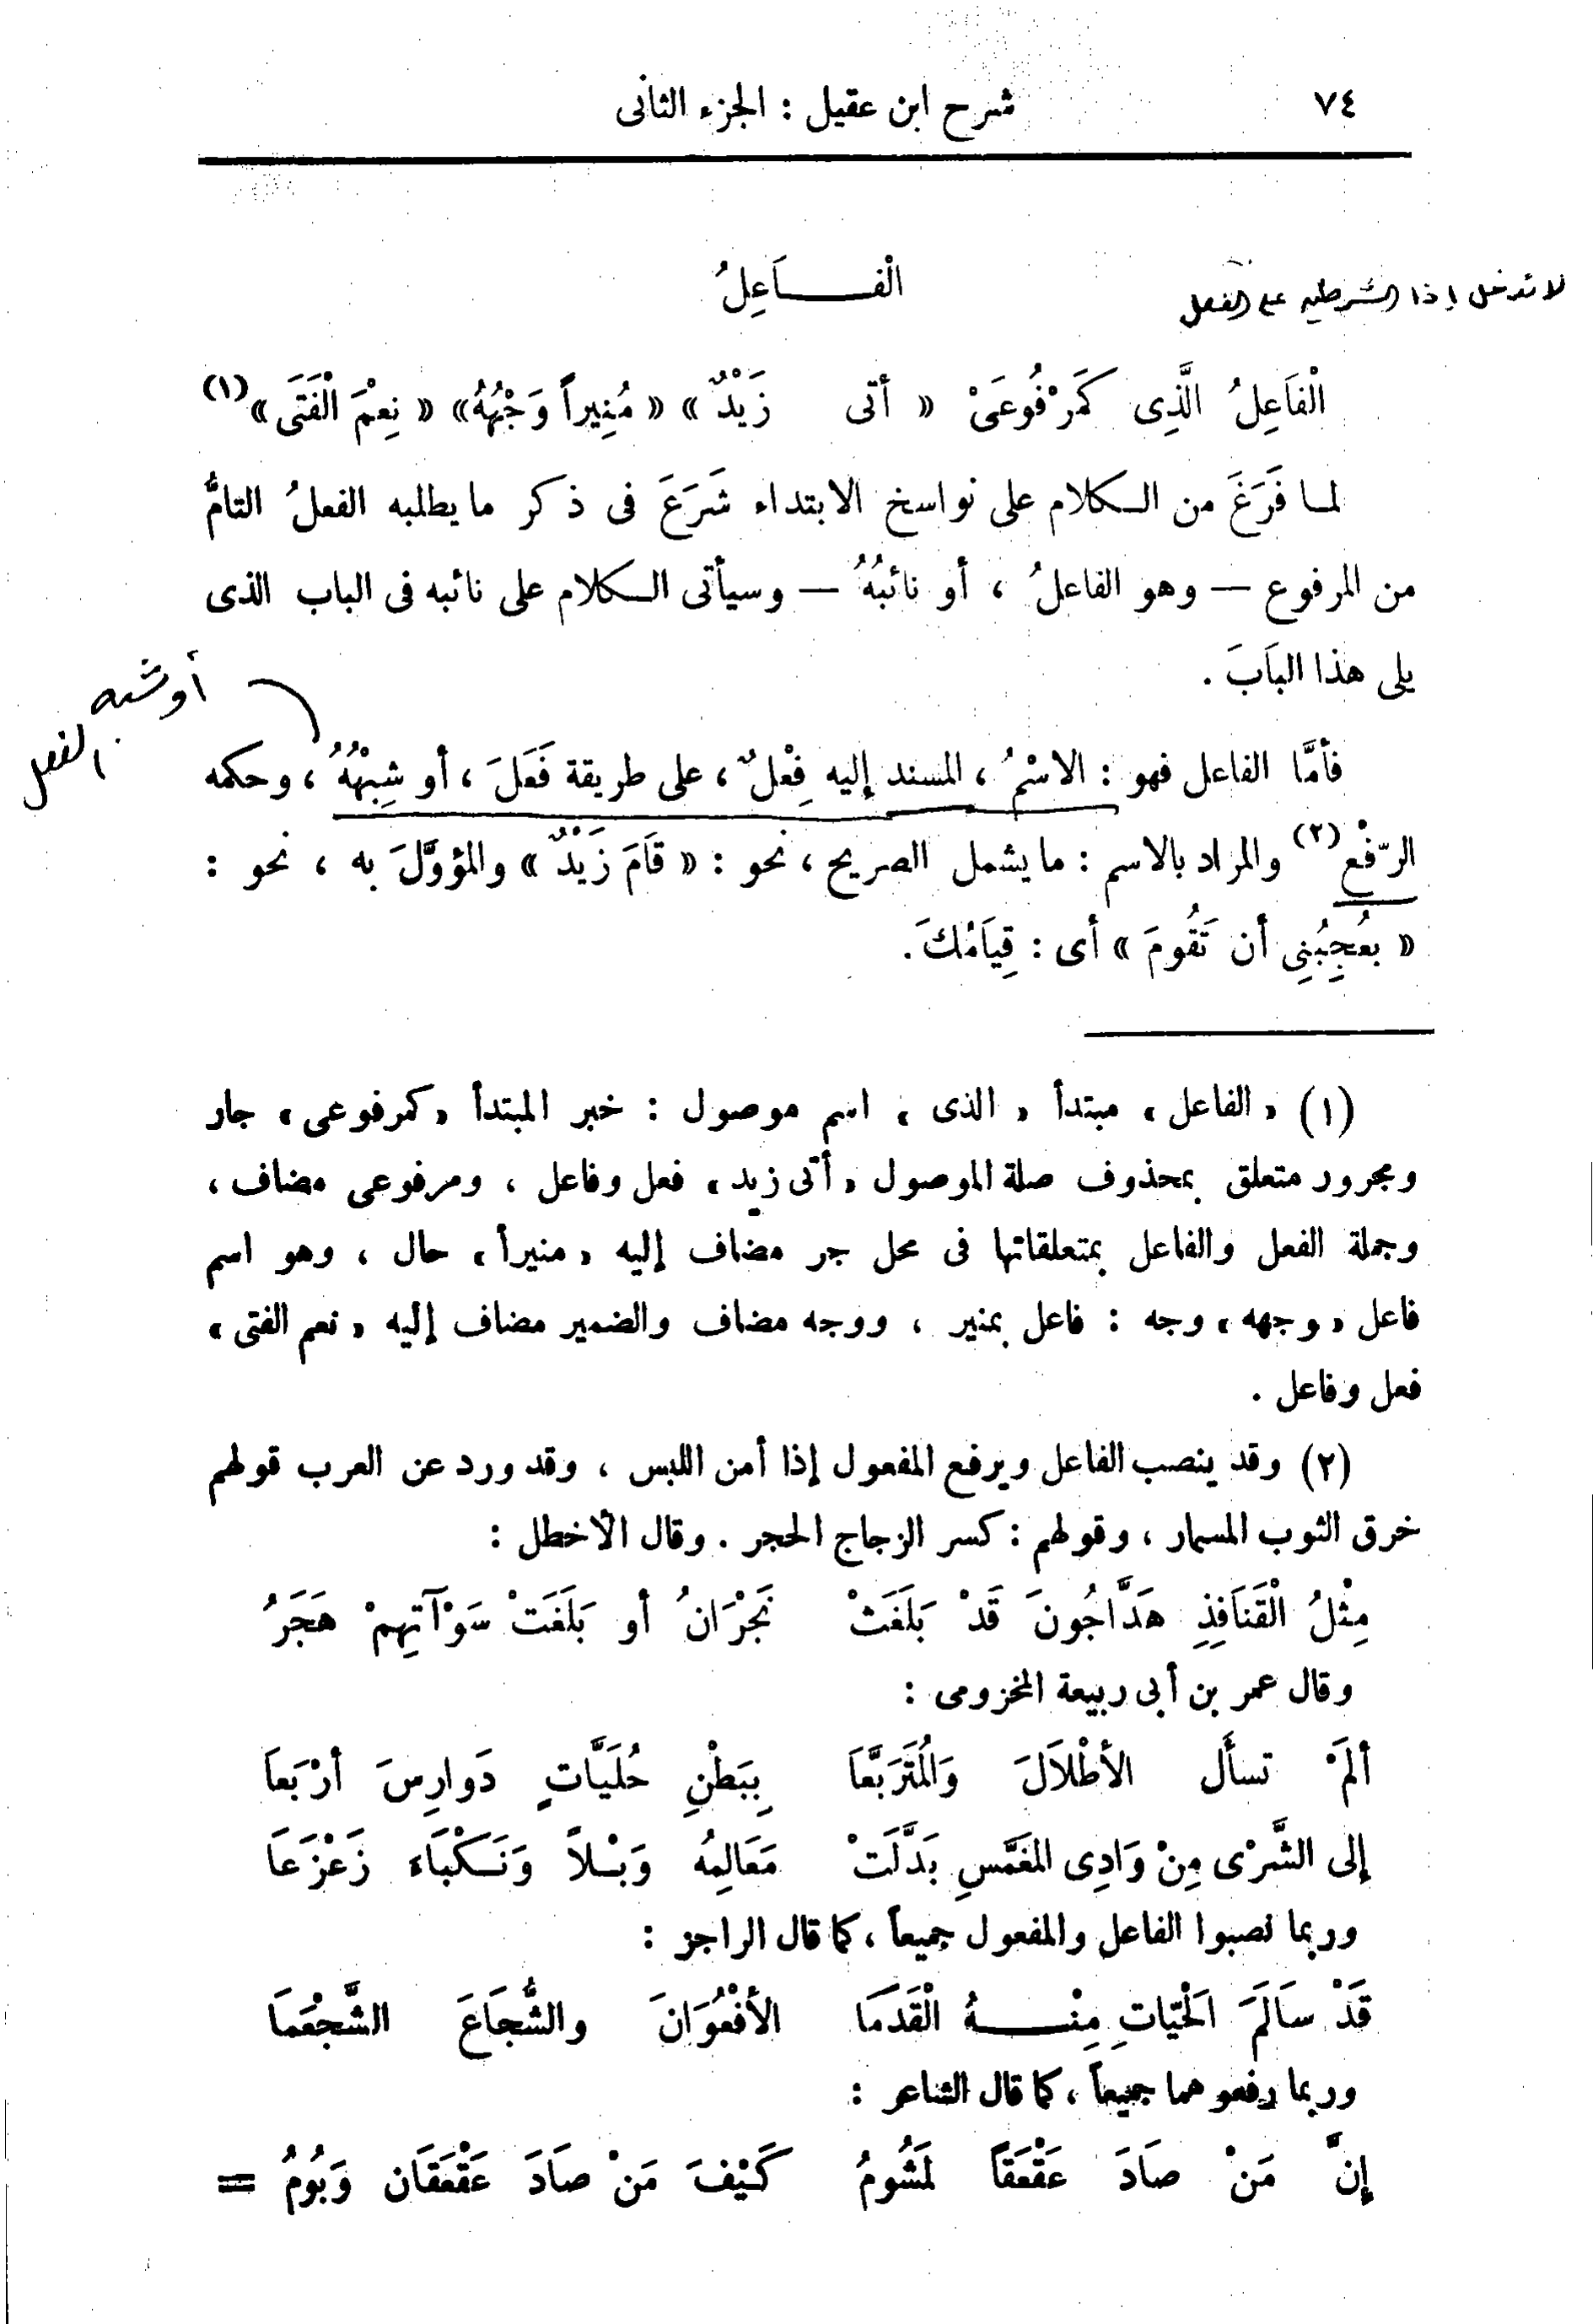 ٧٤ شرح ابن عقيل : الجزء الثانى
الْفَـــاَعِلُ
لا تدخل إذا الشرطية على الفعل
الْفاَعِلُ الَّذِى كَمَرْفُوعَىْ « أتى زَيْدٌ » « مُنِيراً وَجْهُهُ» « نِعْمَ الْفَتَى»(١)
لمـا فَرَغَ من الـكلام على نواسخ الابتداء شَرَعَ فى ذكر ما يطلبه الفعلُ التامُّ
من المرفوع — وهو الفاعلُ ، أو نائبُهُ — وسيأتى الـكلام على نائبه فى الباب الذى
يلى هذا البَابَ .
أو شبه
الفعل
فأمَّا الفاعل فهو : الاسْمُ ، المسند إليه فِعْلٌ ، على طريقة فَعَلَ ، أو شِبْهُهُ ، وحكمه
الرّفْع(٢) والمراد بالاسم : ما يشمل الصريح ، نحو : « قَامَ زَيْدٌ » والمؤوَّلَ به ، نحو :
« يعُجِبُنِى أن تَقُومَ » أى : قِياَمُكَ .
(١) « الفاعل » مبتدأ « الذى » اسم موصول : خبر المبتدأ « كمرفوعى » جار
ومجرور متعلق بمحذوف صلة الموصول « أتى زيد » فعل وفاعل ، ومرفوعى مضاف ،
وجملة الفعل والفاعل بمتعلقاتها فى محل جر مضاف إليه « منيراً » حال ، وهو اسم
فاعل « وجهه » وجه : فاعل بمنير ، ووجه مضاف والضمير مضاف إليه « نعم الفتى »
فعل وفاعل .
(٢) وقد ينصب الفاعل ويرفع المفعول إذا أمن اللبس ، وقد ورد عن العرب قولهم
خرق الثوب المسمار ، وقولهم : كسر الزجاج الحجر . وقال الأخطل :
مِثْلُ الْقَنَافِذِ هَدَّاجُونَ قَدْ بَلَغَتْ نَجْرَانُ أو بَلَغَتْ سَوْآتِهِمْ هَجَرُ
وقال عمر بن أبى ربيعة المخزومى :
ألَمْ تسأَل الأطْلاَلَ وَالْمُتَرَبَّعَا بِبَطْنِ حُلَيَّاتٍ دَوارِسَ أرْبَعاَ
إلى الشَّرْى مِنْ وَادِى المغَمَّسِ بَدَّلَتْ مَعَالِمهُ وَبْـلاً وَنَـكْبَاءَ زَعْزَعَا
وربما نصبوا الفاعل والمفعول جميعاً ، كما قال الراجز :
قَدْ سَالَمَ الَحْيّاتِ مِنْــهُ الْقَدَمَا الأفْعُوَانَ والشُّجَاعَ الشَّجْعَمَا
وربما رفعوهما جميعاً ، كما قال الشاعر :
إِنَّ مَنْ صَادَ عَقْعَقاً لَمَشُومُ كَيْفَ مَنْ صَادَ عَقْعَقَان وَبُومُ =